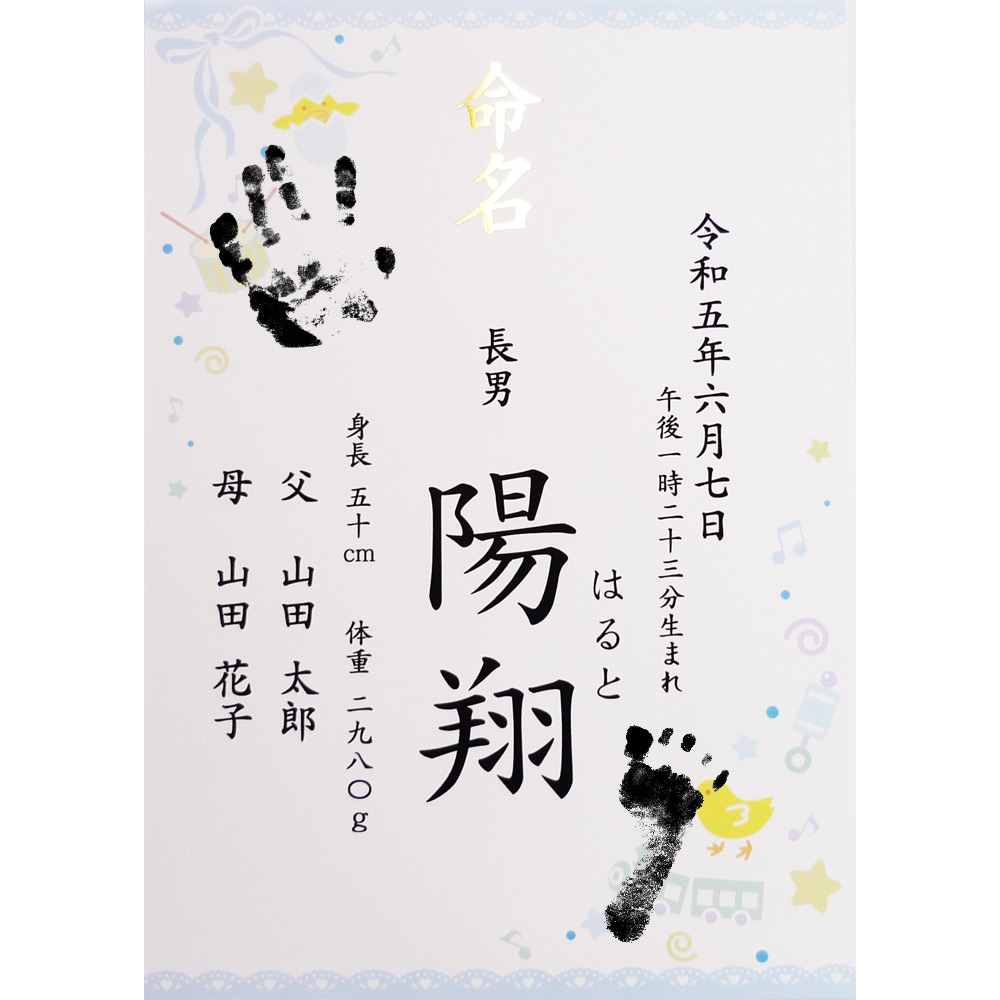 命名
令和五年六月七日
午後一時二十三分生まれ
はると
長男
陽翔
身長 五十cm 体重 二九八〇g
父 山田 太郎
母 山田 花子